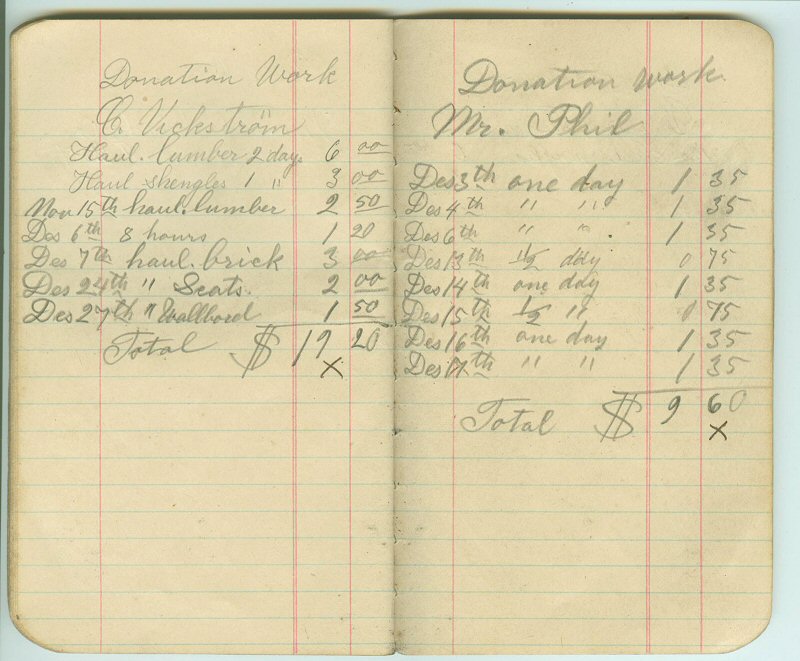 Donation Work
C. Vickström
Haul. lumber 2 days 6 00
Haul shengles 1 " 3 00
Nov 15th haul. lumber 2 50
Des 6th 8 hours 1 20
Des 7th haul. brick 3 00
Des 24th " Seats. 2 00
Des 27th " Wallbord 1 50
Total $ 19 20
X
Donation work.
Mr. Phil
Des 3th one day 1 35
Des 4th " " 1 35
Des 6th " " 1 35
Des 13th 1/2 day 0 75
Des 14th one day 1 35
Des 15th 1/2 " 0 75
Des 16th one day 1 35
Des 17th " " 1 35
Total $ 9 60
X